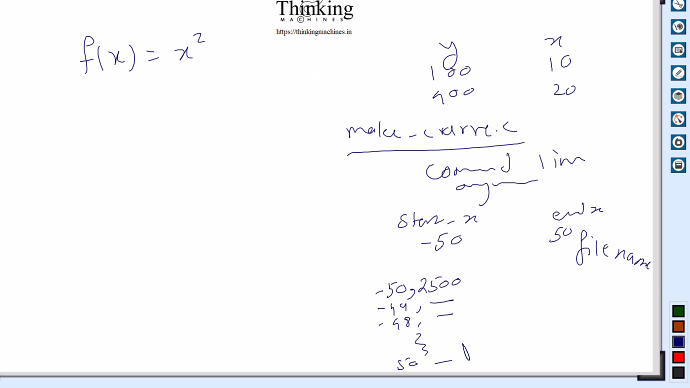 Thinking
MACHINES
https://thinkingmachines.in
f(x) = x²
y x
100 10
400 20
make_curve.c
command line
start_x end x
-50 50
filename
-50,2500
-49,
-48,
50